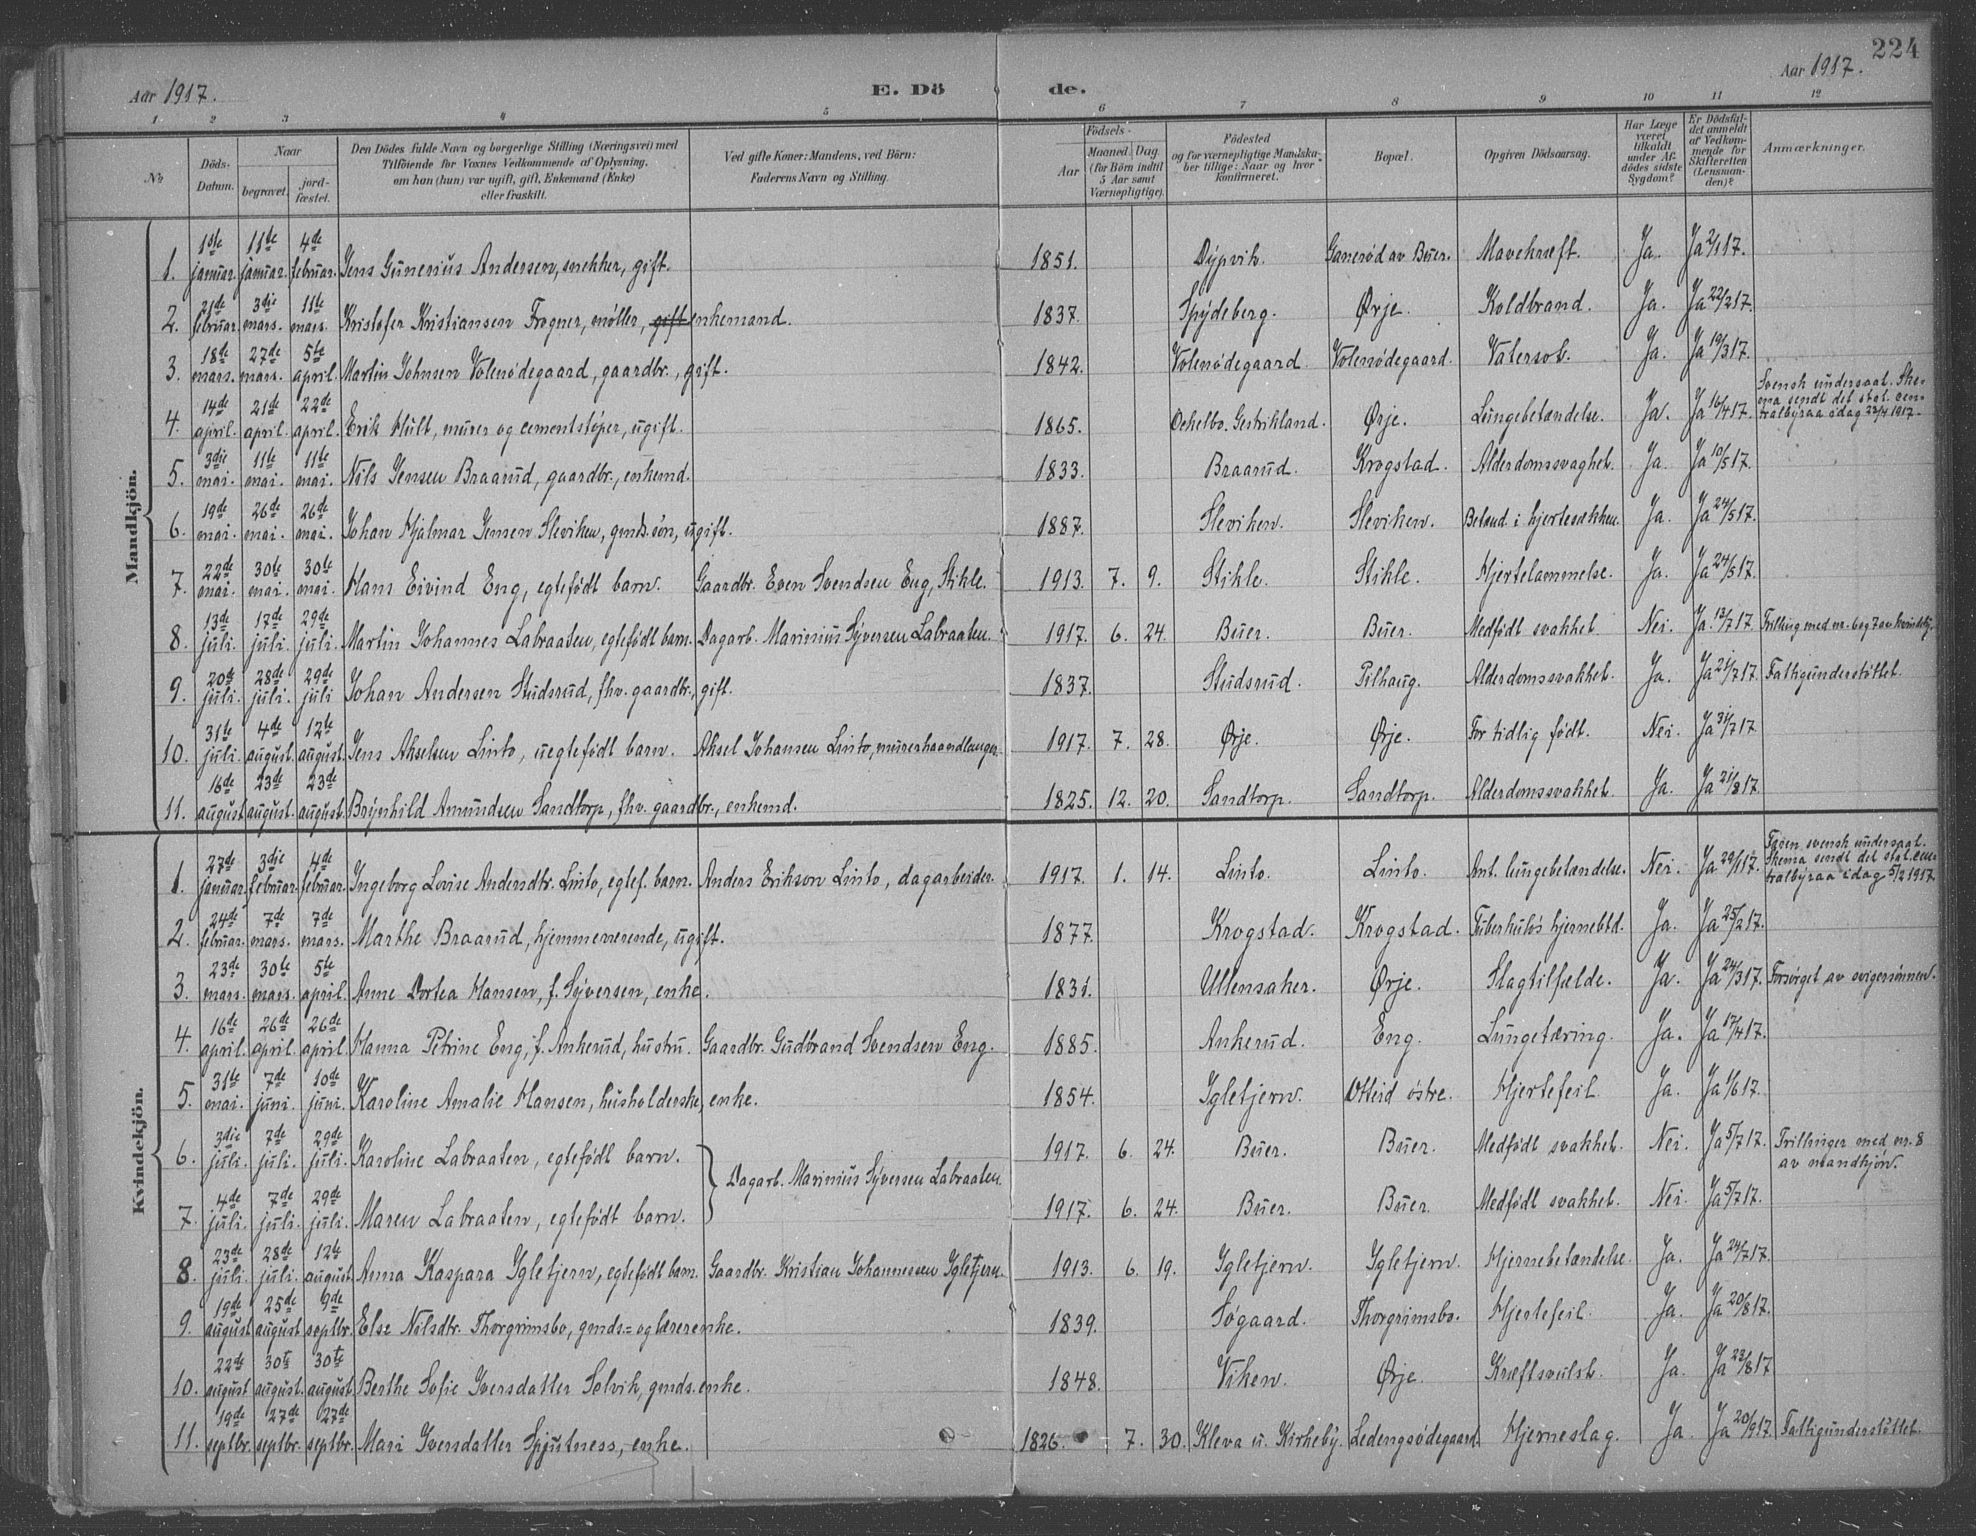 224
Aar 1917.
E. Dö de.
Aar 1917.
1 2 3 4 5 6 7 8 9 10 11 12
No
Döds-Datum.
Naar
begravet.
jord-fæstet.
Den Dödes fulde Navn og borgerlige Stilling (Næringsvei) med
Tilföiende for Voxnes Vedkommende af Oplysning,
om han (hun) var ugift, gift, Enkemand (Enke)
eller fraskilt.
Ved gifte Koner: Mandens, ved Börn:
Faderens Navn og Stilling.
Födsels-
Aar
Maaned. Dag.
(for Börn indtil
5 Aar samt
Værnepligtige).
Födested
og for værnepligtige Mandska-
ber tillige: Naar og hvor
konfirmeret.
Bopæl.
Opgiven Dödsaarsag.
Har Læge
været
tilkaldt
under Af-
dödes sidste
Sygdom?
Er Dödsfal-
det anmeldt
af Vedkom-
mende for
Skifteretten
(Lensman-
den)?
Anmærkninger.
Mandkjön.
1. 1ste januar. 11te januar. 4de februar. Jens Gunerius Andersen, snekker, gift. 1851. Dypvik. Ganerød av Buer. Mavekræft. Ja. Ja 2/1 17.
2. 21de februar. 3die mars. 11te mars. Kristofer Kristiansen Frogner, møller, gift enkemand. 1837. Spydeberg. Ørje. Koldbrand. Ja. Ja 22/2 17.
3. 18de mars. 27de mars. 5te april. Martin Johnsen Volenødegaard, gaardbr., gift. 1842. Volenødegaard. Volenødegaard. Vatersot. Ja. Ja 19/3 17.
4. 14de april. 21de april. 22de april. Erik Hult, murer og cementstøper, ugift. 1865. Ockelbo. Gestrikland. Ørje. Lungebetændelse. Ja. Ja 16/4 17. Svensk undersaat. Ske-
ma sendt det stat. cen-
tralbyraa idag 22/4 1917.
5. 3die mai. 11te mai. 11te mai. Nils Jensen Braarud, gaardbr., enkemd. 1833. Braarud. Krogstad. Alderdomssvaghet. Ja. Ja 10/5 17.
6. 19de mai. 26de mai. 26de mai. Johan Hjalmar Jensen Sleviken, gmds.søn, ugift. 1887. Sleviken. Sleviken. Betænd. i hjertesækken. Ja. Ja 24/5 17.
7. 22de mai. 30te mai. 30te mai. Hans Eivind Eng, egtefødt barn. Gaardbr. Even Svendsen Eng, Stikle. 1913. 7. 9. Stikle. Stikle. Hjertelammelse. Ja. Ja 24/5 17.
8. 13de juli. 17de juli. 29de juli. Martin Johannes Labraaten, egtefødt barn. Dagarb. Marinius Syversen Labraaten. 1917. 6. 24. Buer. Buer. Medfødt svakhet. Nei. Ja 13/7 17. Trilling med nr. 6 og 7 av kvindekj.
9. 20de juli. 28de juli. 29de juli Johan Andersen Studsrud, fhv. gaardbr., gift. 1837. Studsrud. Pilhaug. Alderdomssvakhet. Ja. Ja 21/7 17. Fattigunderstøttet.
10. 31te juli. 4de august. 12te august. Jens Akselsen Linto, uegtefødt barn. Aksel Johansen Linto, murerhaandlanger. 1917. 7. 28. Ørje. Ørje. For tidlig født. Nei. Ja 31/7 17.
11. 16de august. 23de august. 23de august. Brynhild Amundsen Sandtorp, fhv. gaardbr., enkemd. 1825. 12. 20. Sandtorp. Sandtorp. Alderdomssvakhet. Ja. Ja 21/8 17.
Kvindekjön.
1. 27de januar. 3die februar. 4de februar. Ingeborg Lovise Andersdtr. Linto, egtef. barn. Anders Erikson Linto, dagarbeider. 1917. 1. 14. Linto. Linto. Ant. lungebetændelse. Nei. Ja 29/1 17. Faren svensk undersaat.
Skema sendt det stat. cen-
tralbyraa idag 5/2 1917.
2. 24de februar. 7de mars. 7de mars. Marthe Braarud, hjemmeværende, ugift. 1877. Krogstad. Krogstad. Tuberkuløs hjernebtd. Ja. Ja 25/2 17.
3. 23de mars. 30te mars. 5te april. Anne Dortea Hansen, f. Syversen, enke. 1831. Ullensaker. Ørje. Slagtilfælde. Ja. Ja 24/3 17. Forsørget av svigersønnen.
4. 16de april. 26de april. 26de april. Hanna Petrine Eng, f. Ankerud, hustru. Gaardbr. Gudbrand Svendsen Eng. 1885. Ankerud. Eng. Lungetæring. Ja. Ja 17/4 17.
5. 31te mai. 7de juni. 10de juni. Karoline Amalie Hansen, husholderske, enke. 1854. Igletjern. Otteid østre. Hjertefeil. Ja. Ja 1/6 17.
6. 3die juli. 7de juli. 29de juli. Karoline Labraaten, egtefødt barn. 1917. 6. 24. Buer. Buer. Medfødt svakhet. Nei. Ja 5/7 17. Trillinger med nr. 8
av mandkjøn.
Dagarb. Marinius Syversen Labraaten.
7. 4de juli. 7de juli. 29de juli. Maren Labraaten, egtefødt barn. 1917. 6. 24. Buer. Buer. Medfødt svakhet. Nei. Ja 5/7 17.
8. 23de juli. 28de juli. 12te august. Anna Kaspara Igletjern, egtefødt barn. Gaardbr. Kristian Johannessen Igletjern. 1913. 6. 19. Igletjern. Igletjern. Hjernebetændelse. Ja. Ja 24/7 17.
9. 19de august. 25de august. 9de septbr. Else Nilsdtr. Thorgrimsbo, gmds.= og lærerenke. 1839. Søgaard. Thorgrimsbo. Hjertefeil. Ja. Ja 20/8 17.
10. 22de august. 30te august. 30te august. Berthe Sofie Iversdatter Solvik, gmds.enke. 1848. Viken. Ørje. Kræftsvulst. Ja. Ja 23/8 17.
11. 19de septbr. 27de septbr. 27de septbr. Mari Iversdatter Spjutness, enke. 1826. 7. 30. Kleva u. Kirkeby. Ledengsødegaard. Hjerneslag. Ja. Ja 20/9 17. Fattigunderstøttet.